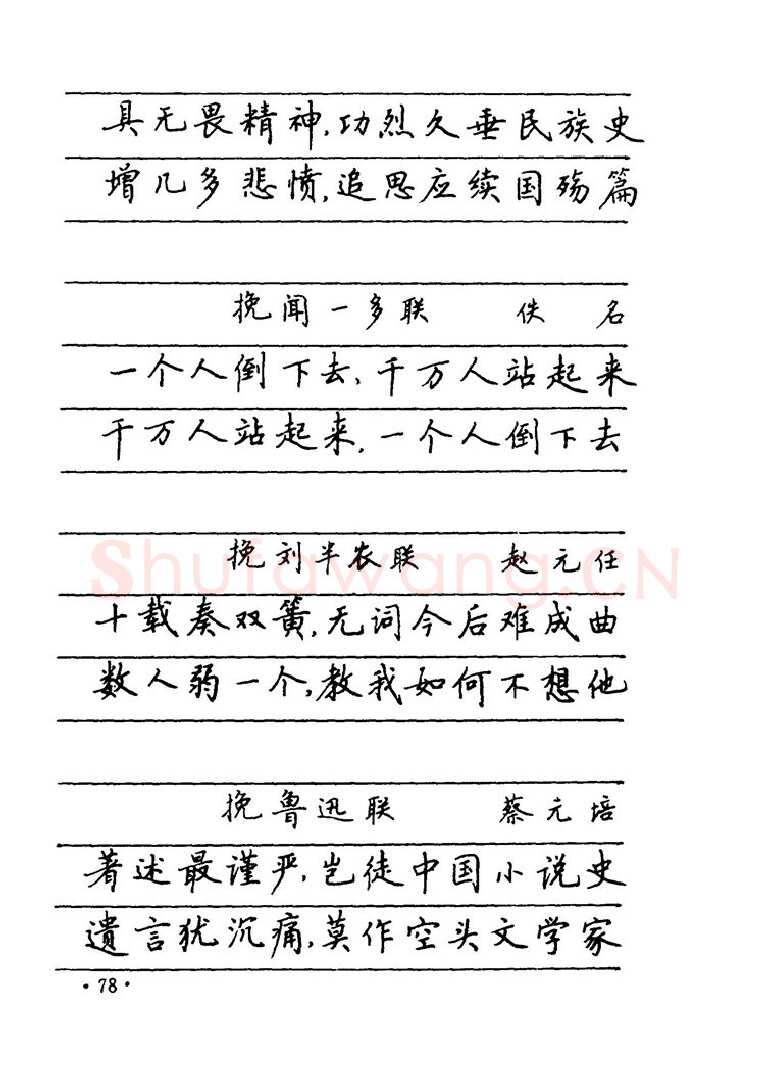 具无畏精神，功烈久垂民族史
增几多悲愤，追思应续国殇篇
挽闻一多联 佚名
一个人倒下去，千万人站起来
千万人站起来，一个人倒下去
挽刘半农联 赵元任
Shufawang.CN
十载奏双簧，无词今后难成曲
数人弱一个，教我如何不想他
挽鲁迅联 蔡元培
著述最谨严，岂徒中国小说史
遗言犹沉痛，莫作空头文学家
·78·